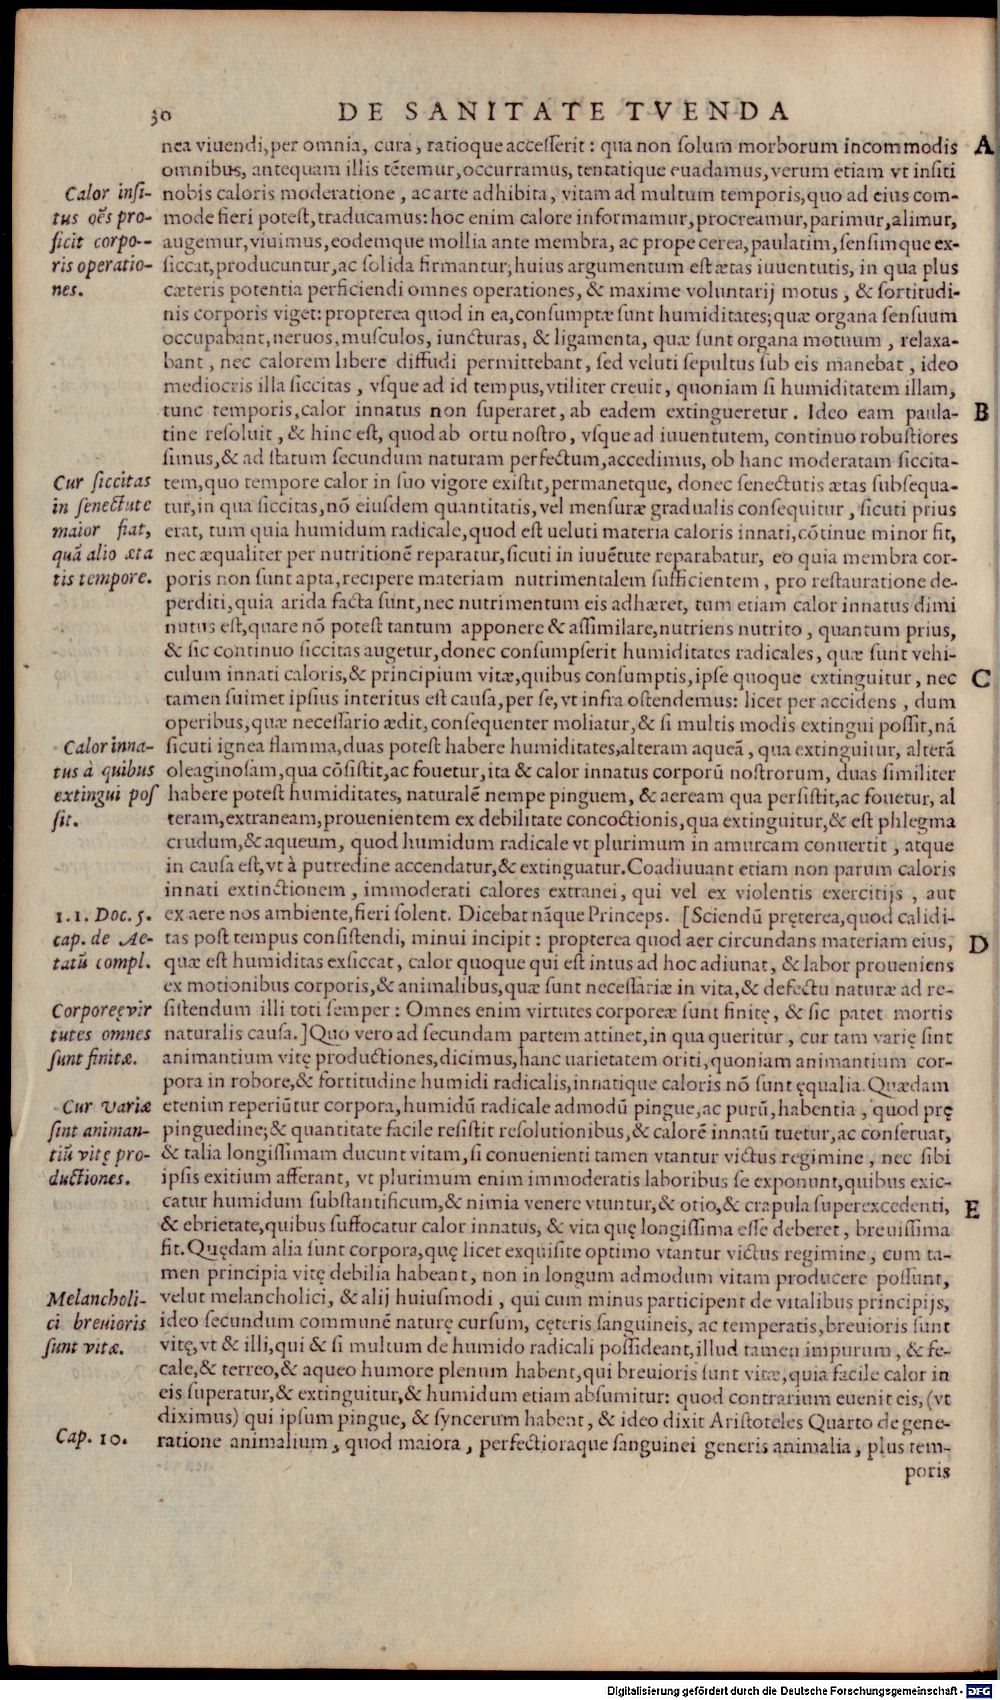 30 DE SANITATE TVENDA
nea viuendi, per omnia, cura, ratioque accesserit: qua non solum morborum incommodis A
omnibus, antequam illis tẽtemur, occurramus, tentatique euadamus, verum etiam vt insiti
Calor insi-
tus oẽs pro-
ficit corpo--
ris operatio-
nes.
nobis caloris moderatione, ac arte adhibita, vitam ad multum temporis, quo ad eius com-
mode fieri potest, traducamus: hoc enim calore informamur, procreamur, parimur, alimur,
augemur, viuimus, eodemque mollia ante membra, ac prope cerea, paulatim, sensimque ex-
siccat, producuntur, ac solida firmantur; huius argumentum est ætas iuuentutis, in qua plus
cæteris potentia perficiendi omnes operationes, & maxime voluntarij motus, & fortitudi-
nis corporis viget: propterea quod in ea, consumptæ sunt humiditates; quæ organa sensuum
occupabant, neruos, musculos, iuncturas, & ligamenta, quæ sunt organa motuum, relaxa-
bant, nec calorem libere diffudi permittebant, sed veluti sepultus sub eis manebat, ideo
mediocris illa siccitas, vsque ad id tempus, vtiliter creuit, quoniam si humiditatem illam,
tunc temporis, calor innatus non superaret, ab eadem extingueretur. Ideo eam paula- B
tine resoluit, & hinc est, quod ab ortu nostro, vsque ad iuuentutem, continuo robustiores
simus, & ad statum secundum naturam perfectum, accedimus, ob hanc moderatam siccita-
Cur siccitas
in senectute
maior fiat,
quã alio æta
tis tempore.
tem, quo tempore calor in suo vigore existit, permanetque, donec senectutis ætas subsequa-
tur, in qua siccitas, nõ eiusdem quantitatis, vel mensuræ gradualis consequitur, sicuti prius
erat, tum quia humidum radicale, quod est ueluti materia caloris innati, cõtinue minor fit,
nec æqualiter per nutritionẽ reparatur, sicuti in iuuẽtute reparabatur, eo quia membra cor-
poris non sunt apta, recipere materiam nutrimentalem sufficientem, pro restauratione de-
perditi, quia arida facta sunt, nec nutrimentum eis adhæret, tum etiam calor innatus dimi
nutus est, quare nõ potest tantum apponere & assimilare, nutriens nutrito, quantum prius,
& sic continuo siccitas augetur, donec consumpserit humiditates radicales, quæ sunt vehi-
culum innati caloris, & principium vitæ, quibus consumptis, ipse quoque extinguitur, nec C
tamen suimet ipsius interitus est causa, per se, vt infra ostendemus: licet per accidens, dum
operibus, quæ necessario ædit, consequenter moliatur, & si multis modis extingui possit, nã
Calor inna-
tus à quibus
extingui pos
sit.
sicuti ignea flamma, duas potest habere humiditates, alteram aqueã, qua extinguitur, alterã
oleaginosam, qua cõsistit, ac fouetur, ita & calor innatus corporũ nostrorum, duas similiter
habere potest humiditates, naturalẽ nempe pinguem, & aeream qua persistit, ac fouetur, al
teram, extraneam, prouenientem ex debilitate concoctionis, qua extinguitur, & est phlegma
crudum, & aqueum, quod humidum radicale vt plurimum in amurcam conuertit, atque
in causa est, vt à putredine accendatur, & extinguatur. Coadiuuant etiam non parum caloris
innati extinctionem, immoderati calores extranei, qui vel ex violentis exercitijs, aut
1.1. Doc. 5.
cap. de Ae-
tatũ compl.
ex aere nos ambiente, fieri solent. Dicebat nãque Princeps. [Sciendũ pręterea, quod calidi-
tas post tempus consistendi, minui incipit: propterea quod aer circundans materiam eius, D
quæ est humiditas exsiccat, calor quoque qui est intus ad hoc adiuuat, & labor proueniens
ex motionibus corporis, & animalibus, quæ sunt necessariæ in vita, & defectu naturæ ad re-
Corporeę vir
tutes omnes
sunt finitæ.
sistendum illi toti semper: Omnes enim virtutes corporeæ sunt finitę, & sic patet mortis
naturalis causa.] Quo vero ad secundam partem attinet, in qua queritur, cur tam varię sint
animantium vitę productiones, dicimus, hanc uarietatem oriti, quoniam animantium cor-
pora in robore, & fortitudine humidi radicalis, innatique caloris nõ sunt ęqualia. Quædam
Cur variæ
sint animan-
tiũ vitę pro-
ductiones.
etenim reperiũtur corpora, humidũ radicale admodũ pingue, ac purũ, habentia, quod prę
pinguedine; & quantitate facile resistit resolutionibus, & calorẽ innatũ tuetur, ac conseruat,
& talia longissimam ducunt vitam, si conuenienti tamen vtantur victus regimine, nec sibi
ipsis exitium afferant, vt plurimum enim immoderatis laboribus se exponunt, quibus exic-
catur humidum substantificum, & nimia venere vtuntur, & otio, & crapula superexcedenti, E
& ebrietate, quibus suffocatur calor innatus, & vita quę longissima esse deberet, breuissima
fit. Quędam alia sunt corpora, quę licet exquisite optimo vtantur victus regimine, cum ta-
men principia vitę debilia habeant, non in longum admodum vitam producere possunt,
Melancholi-
ci breuioris
sunt vitæ.
velut melancholici, & alij huiusmodi, qui cum minus participent de vitalibus principijs,
ideo secundum communẽ naturę cursum, cęteris sanguineis, ac temperatis, breuioris sunt
vitę, vt & illi, qui & si multum de humido radicali possideant, illud tamen impurum, & fe-
cale, & terreo, & aqueo humore plenum habent, qui breuioris sunt vitæ, quia facile calor in
eis superatur, & extinguitur, & humidum etiam absumitur: quod contrarium euenit eis, (vt
diximus) qui ipsum pingue, & syncerum habent, & ideo dixit Aristoteles Quarto de gene-
Cap. 10.
ratione animalium, quod maiora, perfectioraque sanguinei generis animalia, plus tem-
poris
Digitalisierung gefördert durch die Deutsche Forschungsgemeinschaft - DFG